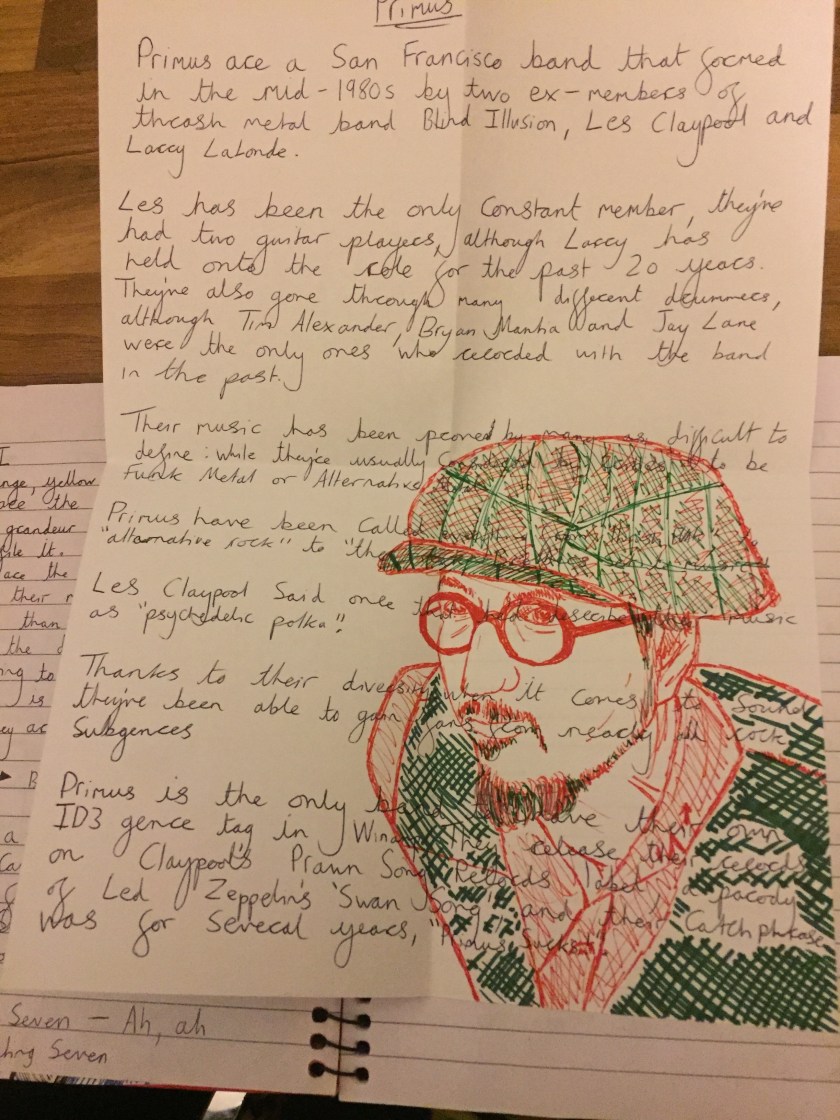 Primus
Primus are a San Francisco band that formed
in the mid-1980s by two ex-members of
thrash metal band Blind Illusion, Les Claypool and
Larry LaLonde.
Les has been the only Constant member, they've
had two guitar players, although Larry has
held onto the role for the past 20 years.
They've also gone through many different drummers,
although Tim Alexander, Bryan Mantia and Jay Lane
were the only ones who recorded with the band
in the past.
Their music has been proved by many as difficult to
define: while they're usually to be
Funk Metal or Alternative
Primus have been called
"alternative rock" to
Les Claypool Said once that had describe the music
as "psychedelic polka".
Thanks to their diversity when it comes to Sound
they've been able to gain fans from nearly all rock
Subgenres
Primus is the only band have their own
ID3 genre tag in They release their records
on Claypool's Prawn Song Records label, a parody
of Led Zeppelin's "Swan Song" and their Catchphrase
was for several years, "Primus Sucks".
nge, yellow
see the
grandeur
ace the
their
than
the
ng to
is
B
a
Seven – Ah, ah
Seven